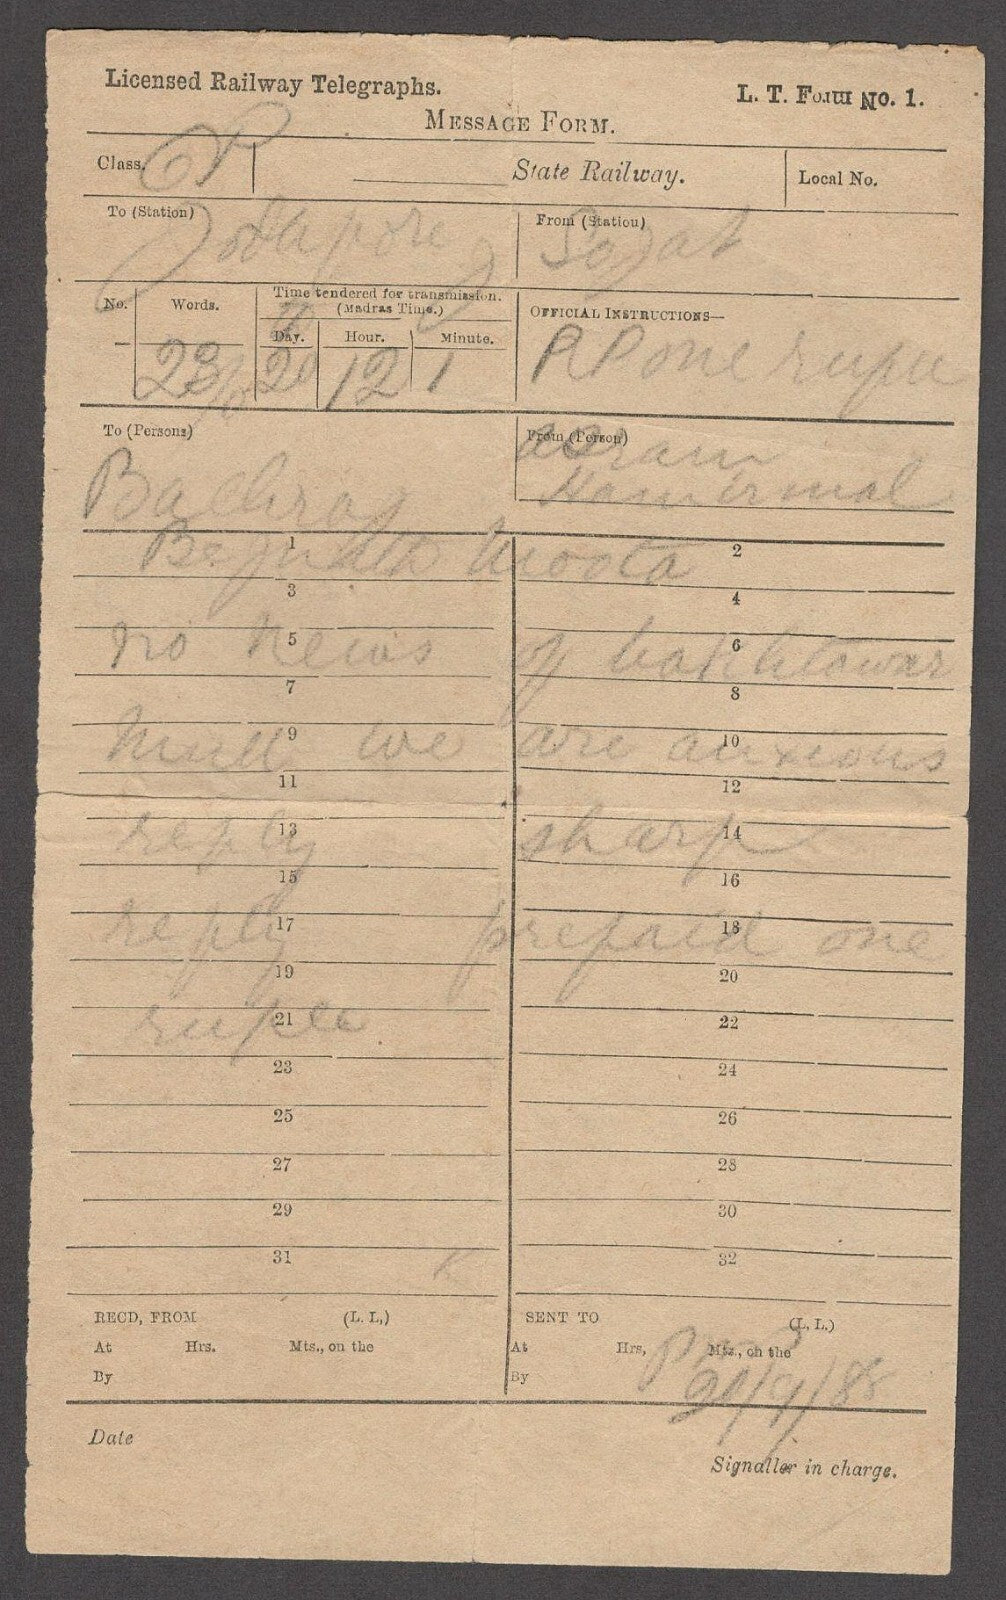 Licensed Railway Telegraphs.
L. T. Form No. 1.
MESSAGE FORM.
Class. P
State Railway.
Local No.
To (Station)
Jodhpore
From (Station)
Sojat
No.
Words.
Time tendered for transmission.
(Madras Time.)
Day.
Hour.
Minute.
OFFICIAL INSTRUCTIONS—
23
20
12
1
RP one rupee
To (Persons)
From (Person)
Hamirmal
Bachraj
Bejnath Moota
1
2
3
4
no news of bakhtawar
5
6
7
8
mull we are anxious
9
10
11
12
reply sharp
13
14
15
16
reply prepaid one
17
18
19
20
rupee
21
22
23
24
25
26
27
28
29
30
31
32
RECD, FROM (L. L.,)
SENT TO (L, L.)
At Hrs. Mts., on the
At Hrs, Mts., on the
By
By
20/9/88
Date
Signaller in charge.